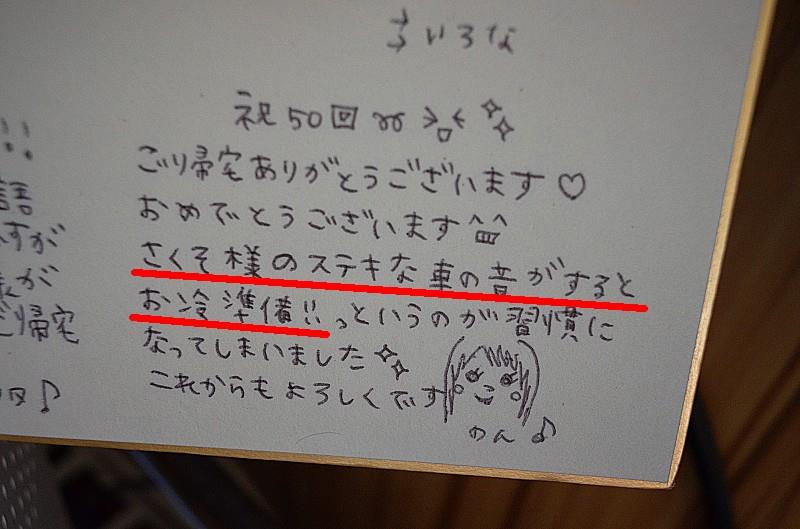 まいろな
祝50回
!!
ごり帰宅ありがとうございます♡
語
おめでとうございます^^
すが
さくそ様のステキな車の音がすると
が
お冷準備!!っというのが習慣に
ご帰宅
なってしまいました
これからもよろしくです
♪
のん♪